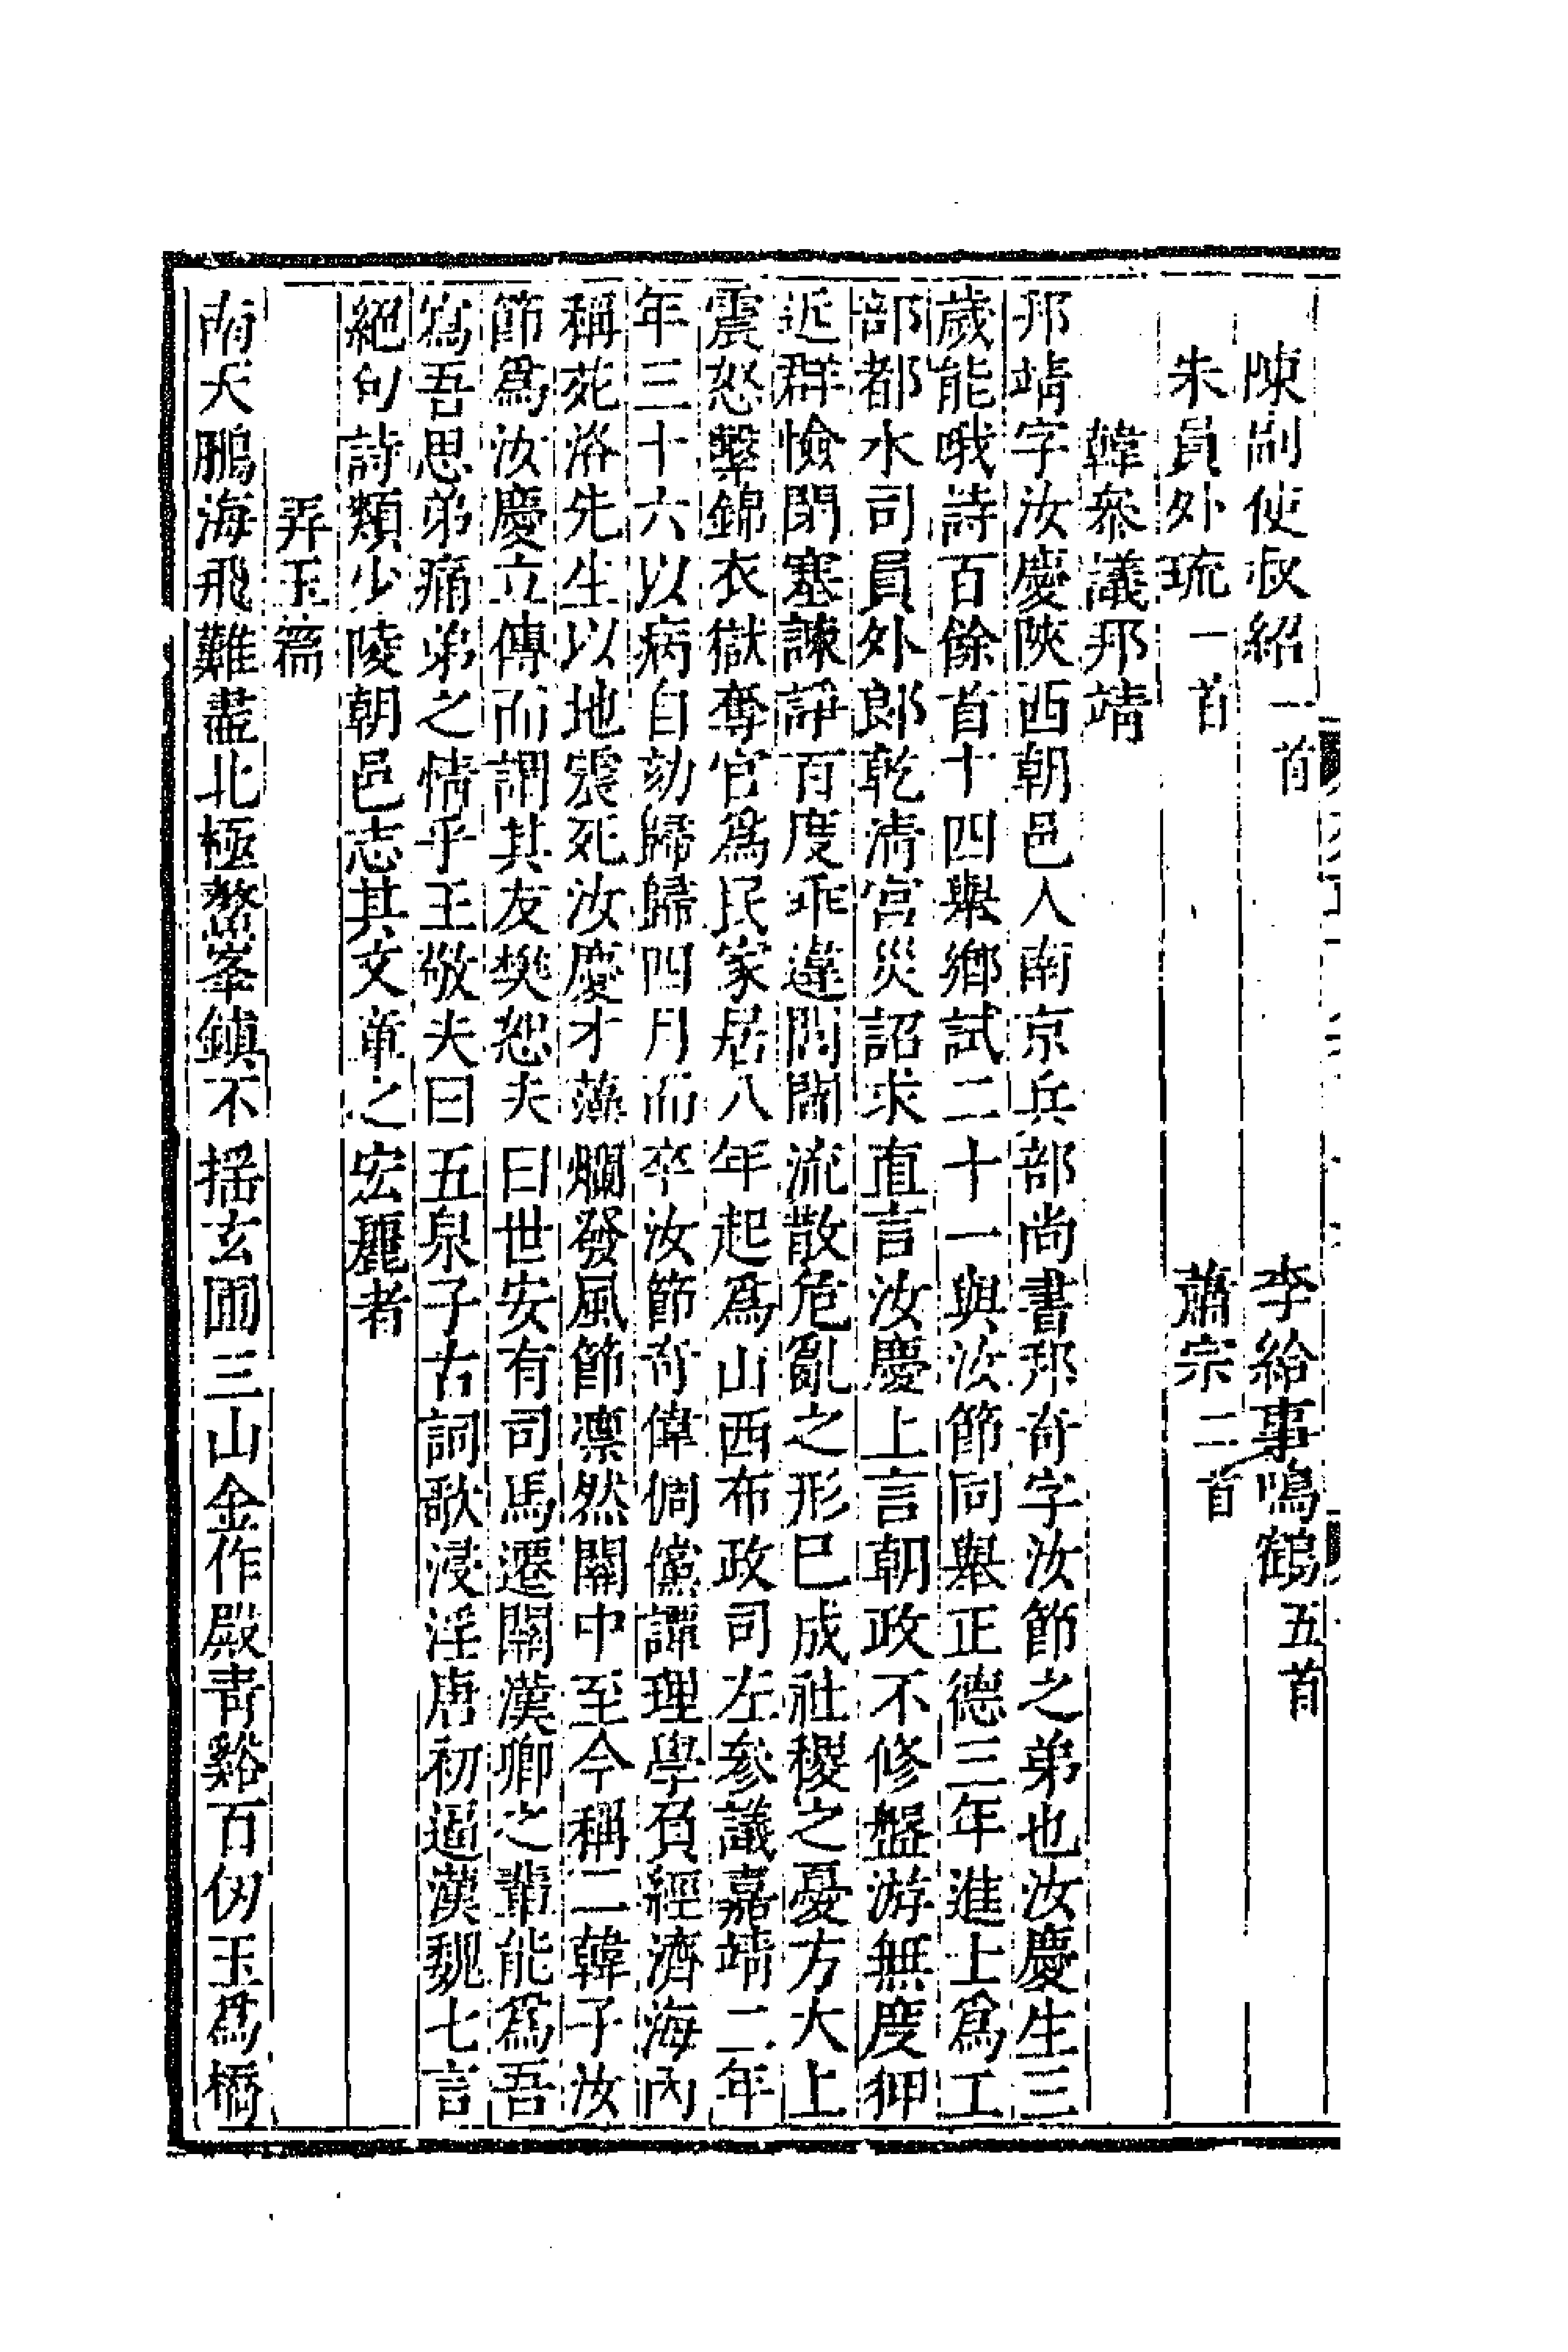 陳副使叔紹一首　李給事鳴鶴五首
朱員外琉一首　蕭宗二首
韓叅議邦靖
邦靖字汝慶陝西朝邑人南京兵部尚書邦奇字汝節之弟也汝慶生三
歲能哦詩百餘首十四舉鄉試二十一與汝節同舉正德三年進士爲工
部都水司員外郎乾淸宮災詔求直言汝慶上言朝政不修盤游無度狎
近群憸閉塞諫諍百度乖違閭閻流散危亂之形已成社稷之憂方大上
震怒繫錦衣獄奪官爲民家居八年起爲山西布政司左參議嘉靖二年
年三十六以病自劾歸歸四月而卒汝節奇偉倜儻譚理學負經濟海內
稱苑洛先生以地震死汝慶才藻爛發風節凛然關中至今稱二韓子汝
節爲汝慶立傳而謂其友樊恕夫曰世安有司馬遷關漢卿之輩能爲吾
寫吾思弟痛弟之情乎王敬夫曰五泉子古詞歌浸淫唐初逼漢魏七言
絕句詩類少陵朝邑志其文章之宏麗者
弄玉篇
南天鵬海飛難盡北極鰲峯鎮不揺玄圃三山金作殿青谿百仞玉爲橋